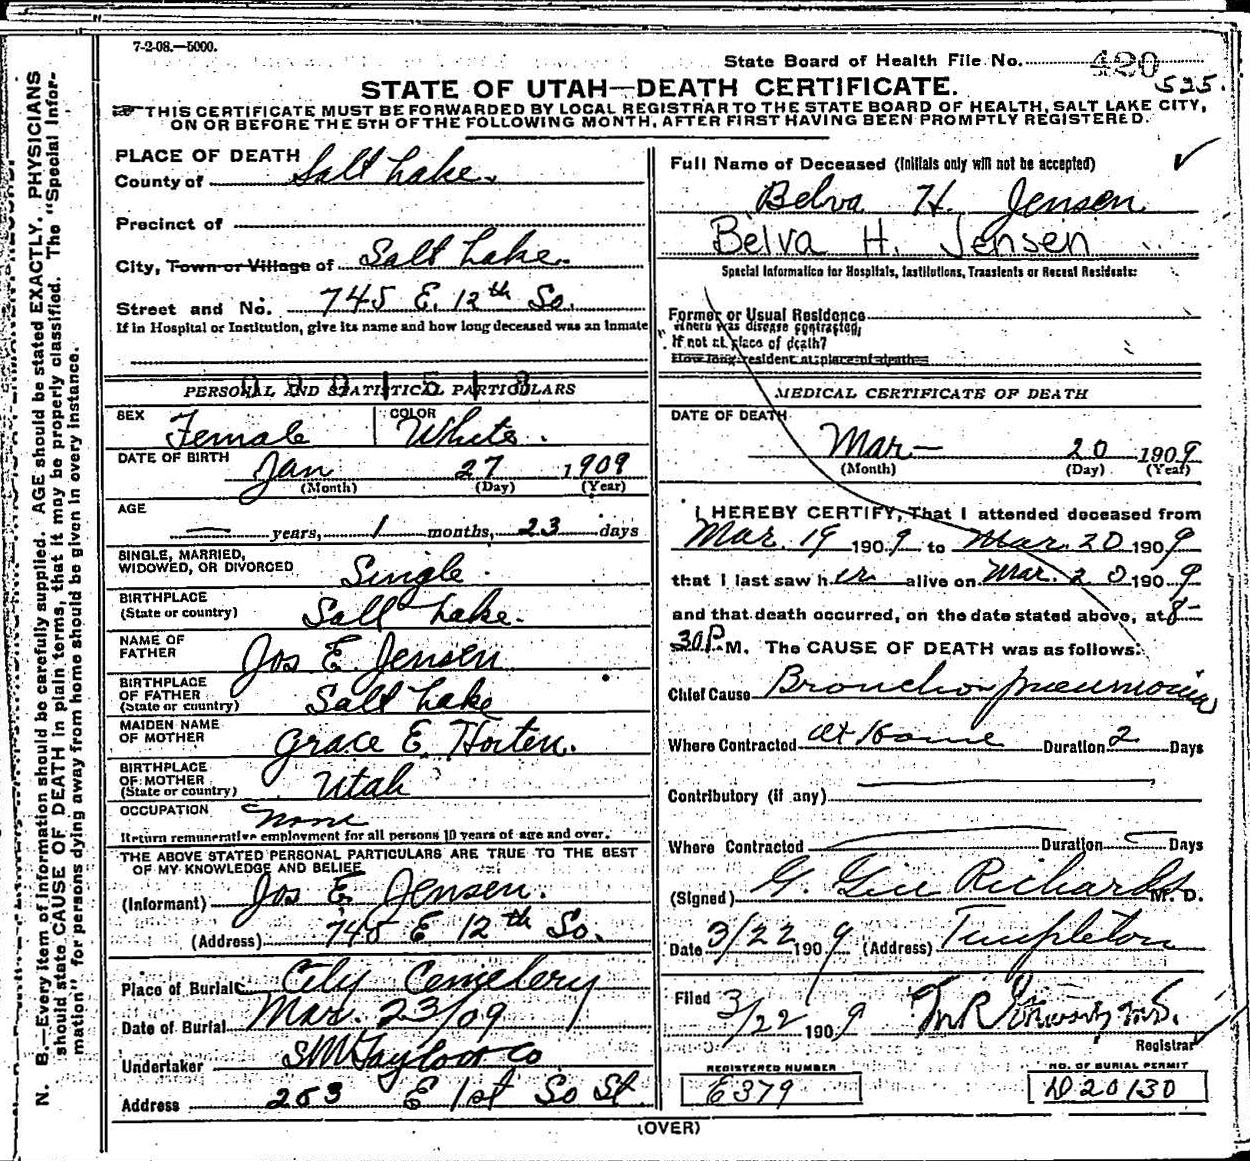 7-2-08.—5000.
State Board of Health File No. 420
525.
STATE OF UTAH—DEATH CERTIFICATE.
THIS CERTIFICATE MUST BE FORWARDED BY LOCAL REGISTRAR TO THE STATE BOARD OF HEALTH, SALT LAKE CITY,
ON OR BEFORE THE 5TH OF THE FOLLOWING MONTH, AFTER FIRST HAVING BEEN PROMPTLY REGISTERED.
N. B.—Every item of information should be carefully supplied. AGE should be stated EXACTLY. PHYSICIANS
should state CAUSE OF DEATH in plain terms, that it may be properly classified. The "Special Infor-
mation" for persons dying away from home should be given in every instance.
PLACE OF DEATH
County of Salt Lake.
Precinct of
City, Town or Village of Salt Lake.
Street and No. 745 E. 12th So.
If in Hospital or Institution, give its name and how long deceased was an Inmate
PERSONAL AND STATISTICAL PARTICULARS
SEX Female COLOR White.
DATE OF BIRTH Jan 27 1909
(Month) (Day) (Year)
AGE
— years, 1 months, 23 days
SINGLE, MARRIED,
WIDOWED, OR DIVORCED Single.
BIRTHPLACE
(State or country) Salt Lake.
NAME OF
FATHER Jos E. Jensen
BIRTHPLACE
OF FATHER
(State or country) Salt Lake
MAIDEN NAME
OF MOTHER Grace E. Horten.
BIRTHPLACE
OF MOTHER
(State or country) Utah
OCCUPATION None
Return remunerative employment for all persons 10 years of age and over.
THE ABOVE STATED PERSONAL PARTICULARS ARE TRUE TO THE BEST
OF MY KNOWLEDGE AND BELIEF
(Informant) Jos E. Jensen.
(Address) 745 E 12th So.
Place of Burial City Cemetery
Date of Burial Mar. 23/09
Undertaker S M Taylor Co
Address 253 E 1st So St.
Full Name of Deceased (Initials only will not be accepted)
Belva H. Jensen
Belva H. Jensen
Special Information for Hospitals, Institutions, Transients or Recent Residents:
Former or Usual Residence
Where was disease contracted,
If not at place of death?
How long resident at place of death
MEDICAL CERTIFICATE OF DEATH
DATE OF DEATH
Mar— 20 1909
(Month) (Day) (Year)
I HEREBY CERTIFY, That I attended deceased from
Mar. 19 1909 to Mar. 20 1909
that I last saw her alive on Mar. 20 1909
and that death occurred, on the date stated above, at 8-
30 P. M. The CAUSE OF DEATH was as follows:
Chief Cause Broncho pneumonia
Where Contracted at Home Duration 2 Days
Contributory (if any)
Where Contracted Duration Days
(Signed) G. Gill Richards M. D.
Date 3/22 1909 (Address) Templeton
Filed 3/22 1909
Registrar
REGISTERED NUMBER
E379
NO. OF BURIAL PERMIT
D20130
(OVER)